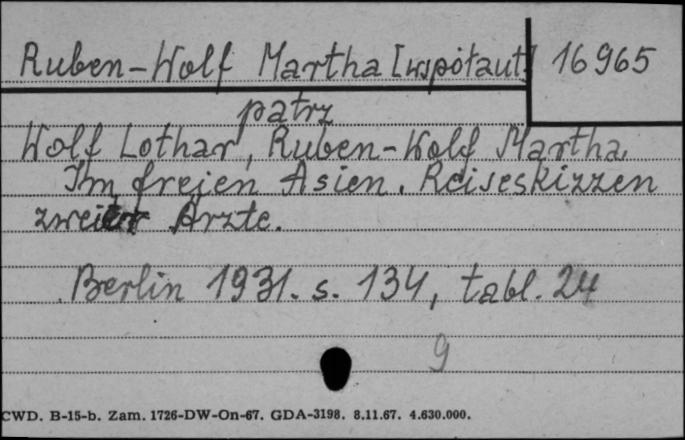 Ruben-Wolf Martha [współaut.] 16965
patrz
Wolf Lothar, Ruben-Wolf Martha
Im freien Asien. Reiseskizzen
zweier Ärzte.
Berlin 1931. s. 134, tabl. 24
9
CWD. B-15-b. Zam. 1726-DW-On-67. GDA-3198. 8.11.67. 4.630.000.